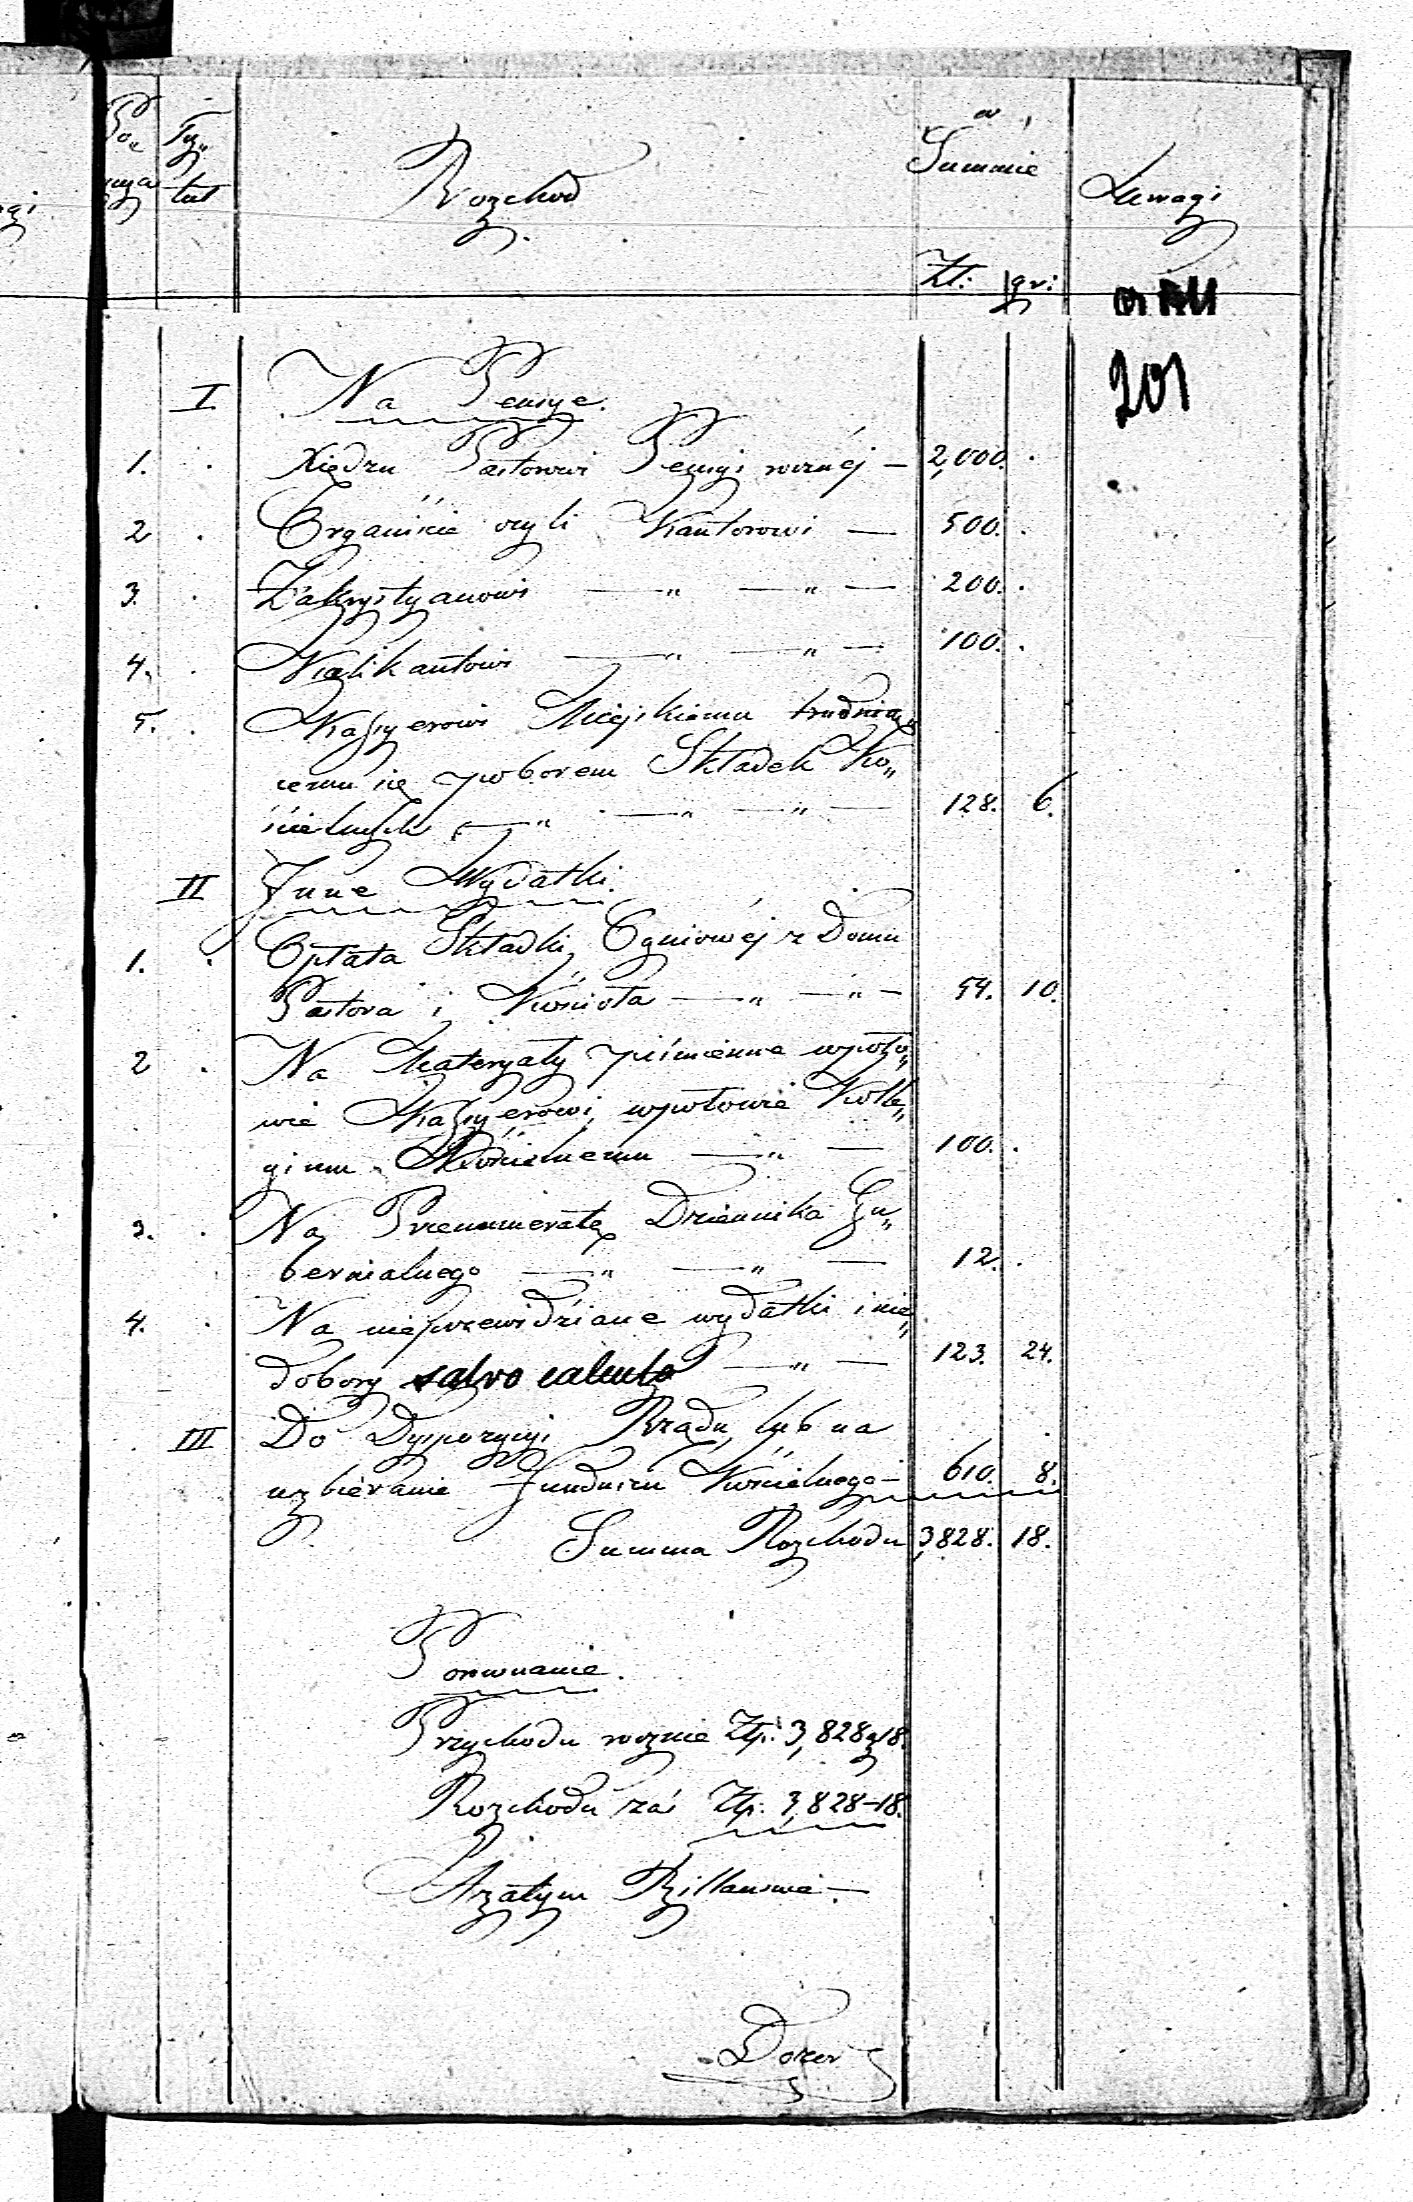 Po„ Ty„ Rozchód w Summie Uwagi
zycya tuł
Zł: gr:
201
I Na Pensye.
1. Xiędzu Pastorowi Pensyi rocznéj — 2,000. .
2 . Organiście czyli Kantorowi — 500. .
3. . Zakrystyanowi — „ — „ — 200. .
4. . Kalikantowi — „ — „ — 100. .
5. . Kassyerowi Miejskiemu trudnią„
cemu się poborem Składek Ko„
ścielnych — „ — „ — „ — 128. 6.
II Inne Wydatki.
1. . Opłata Składki Ogniowéj z Domu
Pastora i Kościoła — „ — „ — 54. 10.
2 . Na Materyały piśmienne wpoło„
wie Kassyerowi, wpołowie Kolle„
gium Kościelnemu — „ — 100. .
3. . Na Prenumeratę Dziennika Gu„
bernialnego — „ — „ — 12. .
4. . Na nieprzewidziane wydatki i nie„
dobory salvo calculo — „ — 123. 24.
III Do Dyspozycyi Rządu, lub na
uzbieranie Funduszu Kościelnego — 610. 8.
Summa Rozchodu 3,828. 18.
Porównanie.
Przychodu rocznie Złp: 3,828 g 18.
Rozchodu zaś Złp: 3,828 — 18.
A zatym Billansuie. —
Dozór